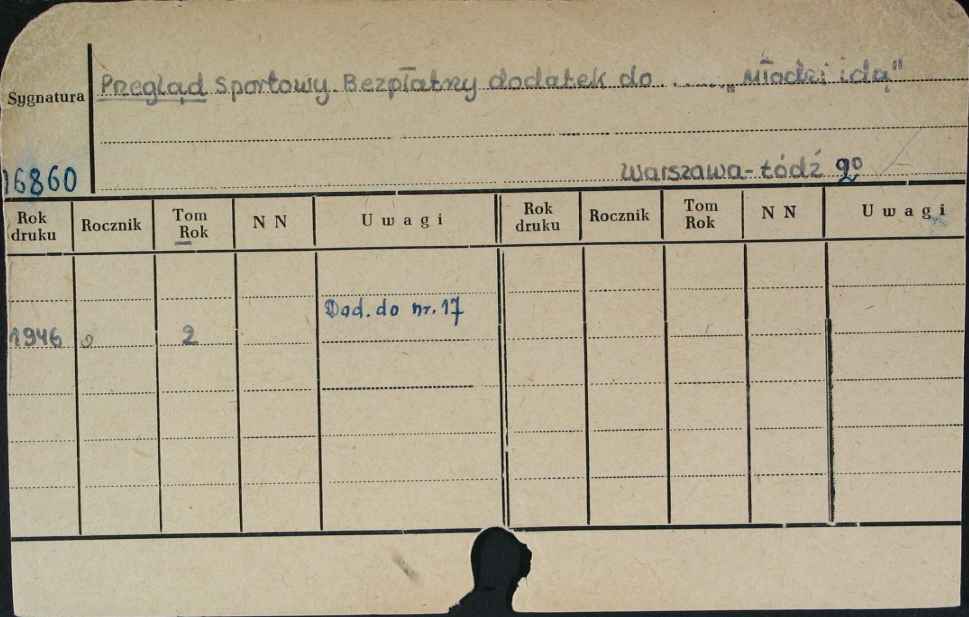 Przegląd Sportowy. Bezpłatny dodatek do ...... „Młodzi idą"
Sygnatura
16860
Warszawa-Łódź 2°
Rok druku Rocznik Tom Rok N N Uwagi Rok druku Rocznik Tom Rok N N Uwagi
Dod. do nr. 17
1946 2